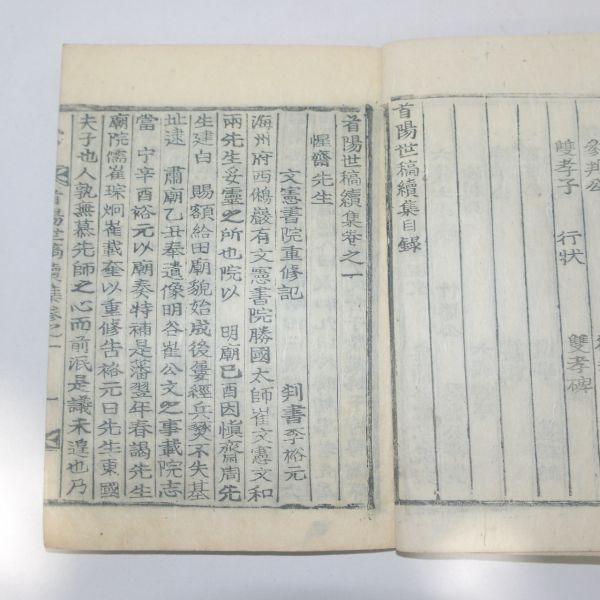 雙孝碑
劉邦公
雙孝子　行狀
首陽世稿續集目錄
首陽世稿續集卷之一
惺齋先生
文憲書院重修記　判書李裕元
海州府西僞巖有文憲書院勝國太師崔文憲文和
兩先生妥靈之所也院以　明廟己酉因愼齋周先
生建白　賜額給田廟貌始成後屢經兵燹不失基
址逮　肅廟乙丑奉遺像明谷崔公文之事載院志
當宁辛酉裕元以廟奏特補是藩翌年春謁先生
廟院儒崔琛炯崔載奎以重修告裕元曰先生東國
夫子也人孰無慕先師之心而前泯是議未遑也乃
首陽世稿續集卷之一　一